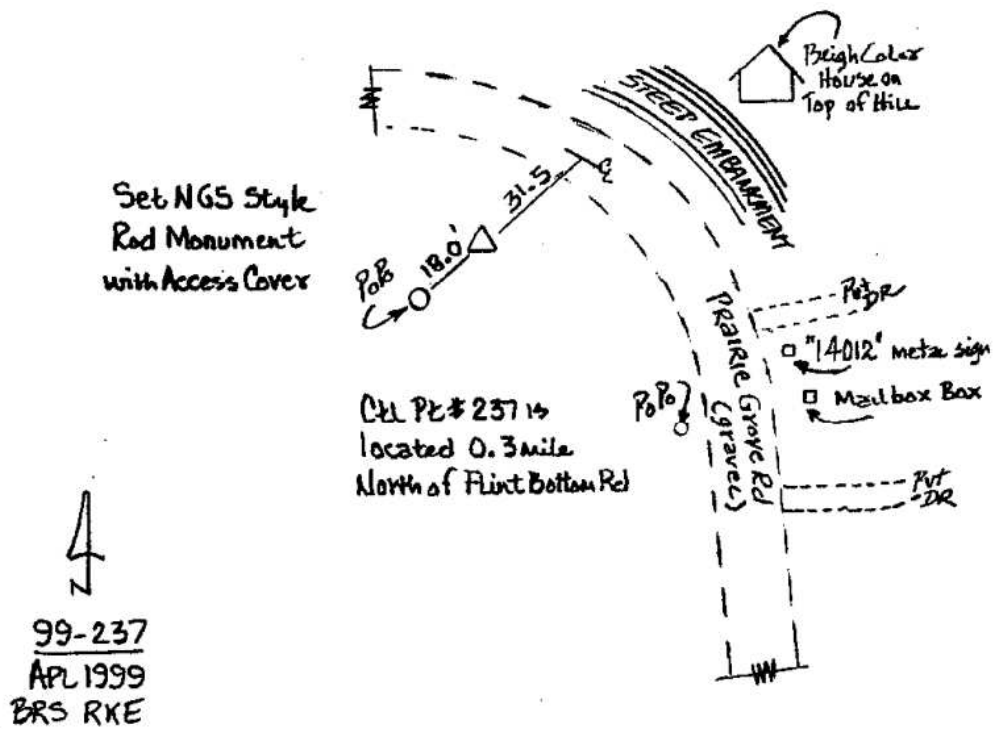 Beigh Color
House on
Top of Hill
STEEP EMBANKMENT
Set NGS Style
Rod Monument
with Access Cover
31.5
18.0'
PoPo
Pvt
DR
PRAIRIE Grove Rd
(gravel)
"14012" metal sign
Mailbox Box
PoPo
Ctl Pt # 237 is
located 0.3 mile
North of Flint Bottom Rd
Pvt
DR
N
99-237
APL 1999
BRS RKE